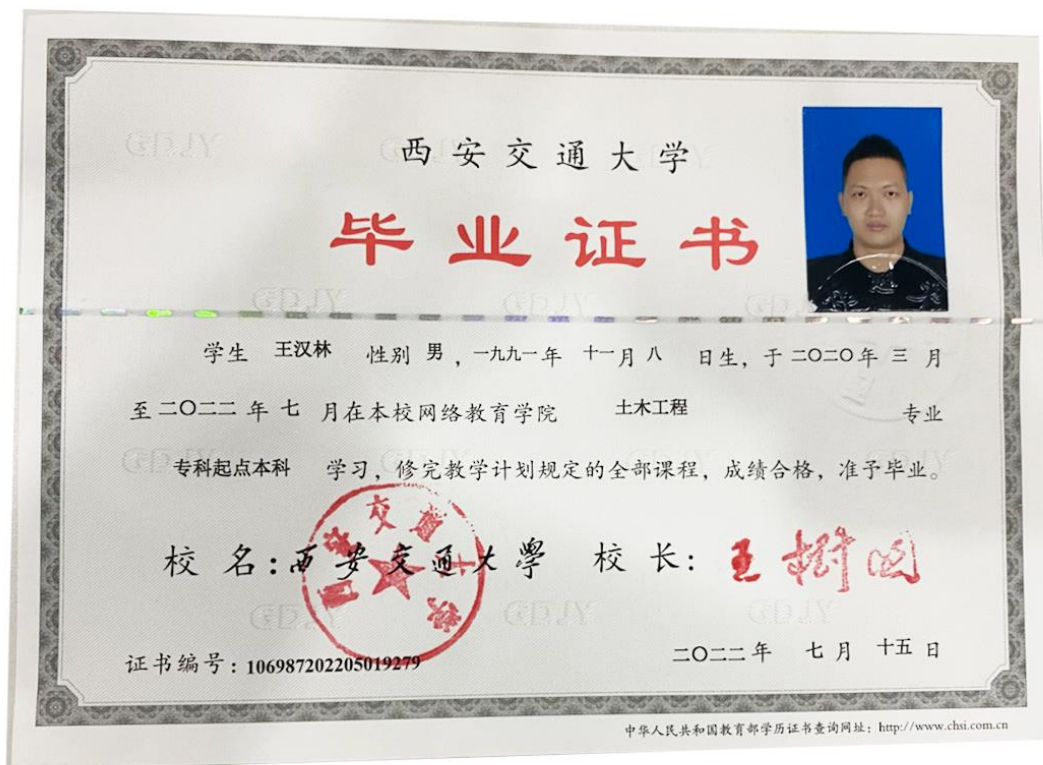 西安交通大学
毕业证书
学生 王汉林 性别 男，一九九一年 十一月八 日生，于二〇二〇年 三 月
至二〇二二 年 七 月在本校网络教育学院 土木工程 专业
专科起点本科 学习，修完教学计划规定的全部课程，成绩合格，准予毕业。
校 名：西安交通大學 校 长：王樹国
证书编号：106987202205019279
二〇二二年 七月 十五 日
中华人民共和国教育部学历证书查询网址：http://www.chsi.com.cn
GDJY
GDJY
GDJY
GDJY
GDJY
GDJY
GDJY
GDJY